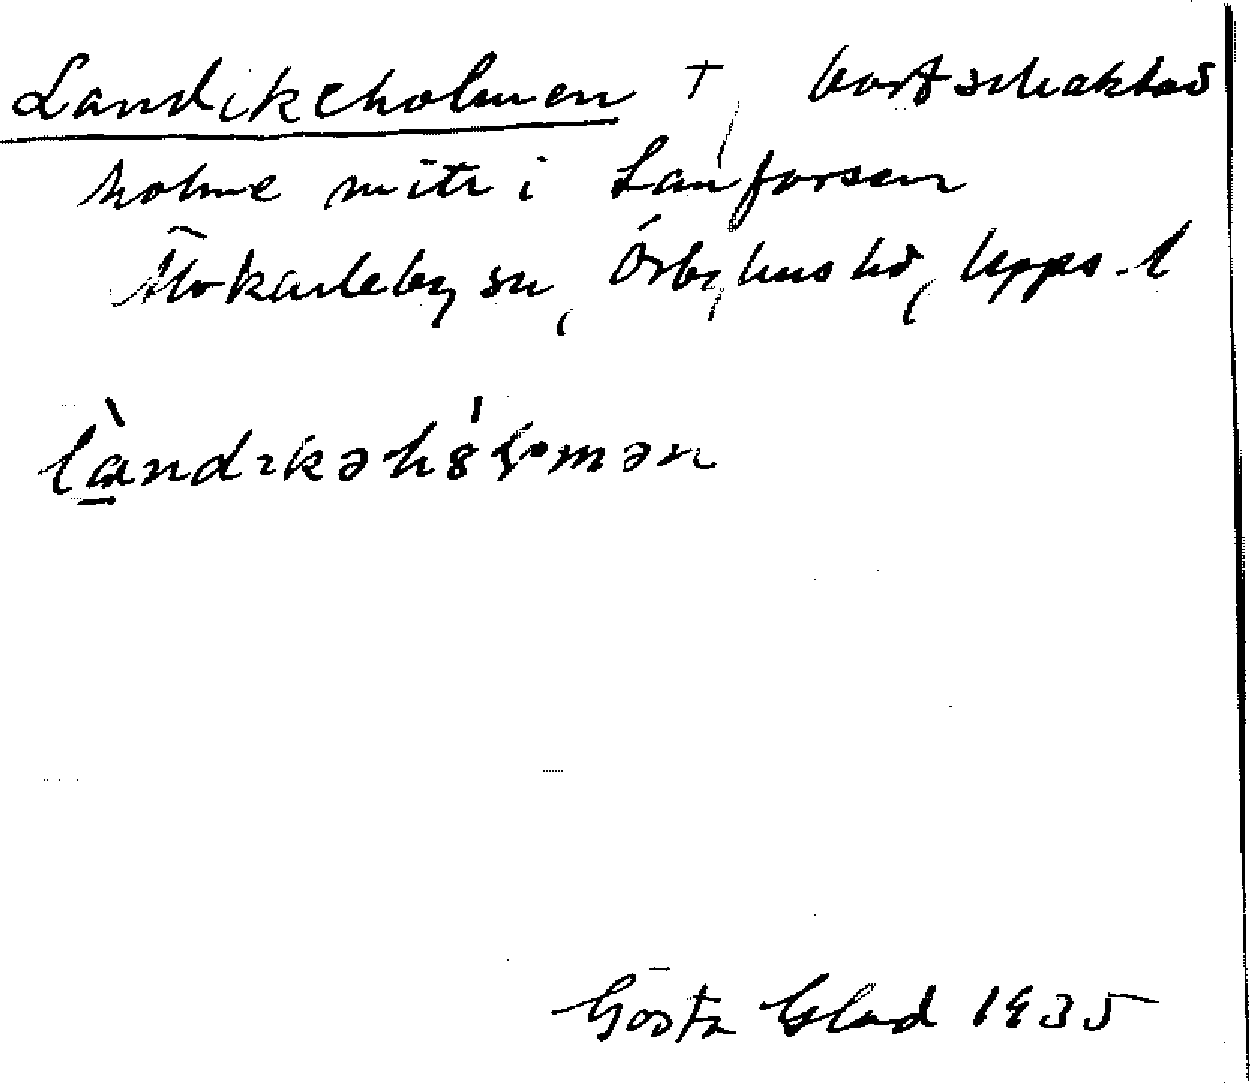 Landikeholmen †, bortschaktad
holme mitt i Lanforsen
Älvkarleby sn, Örbyhus hd, Upps. l
làndɩkəhól·mən
Gösta Glad 1935